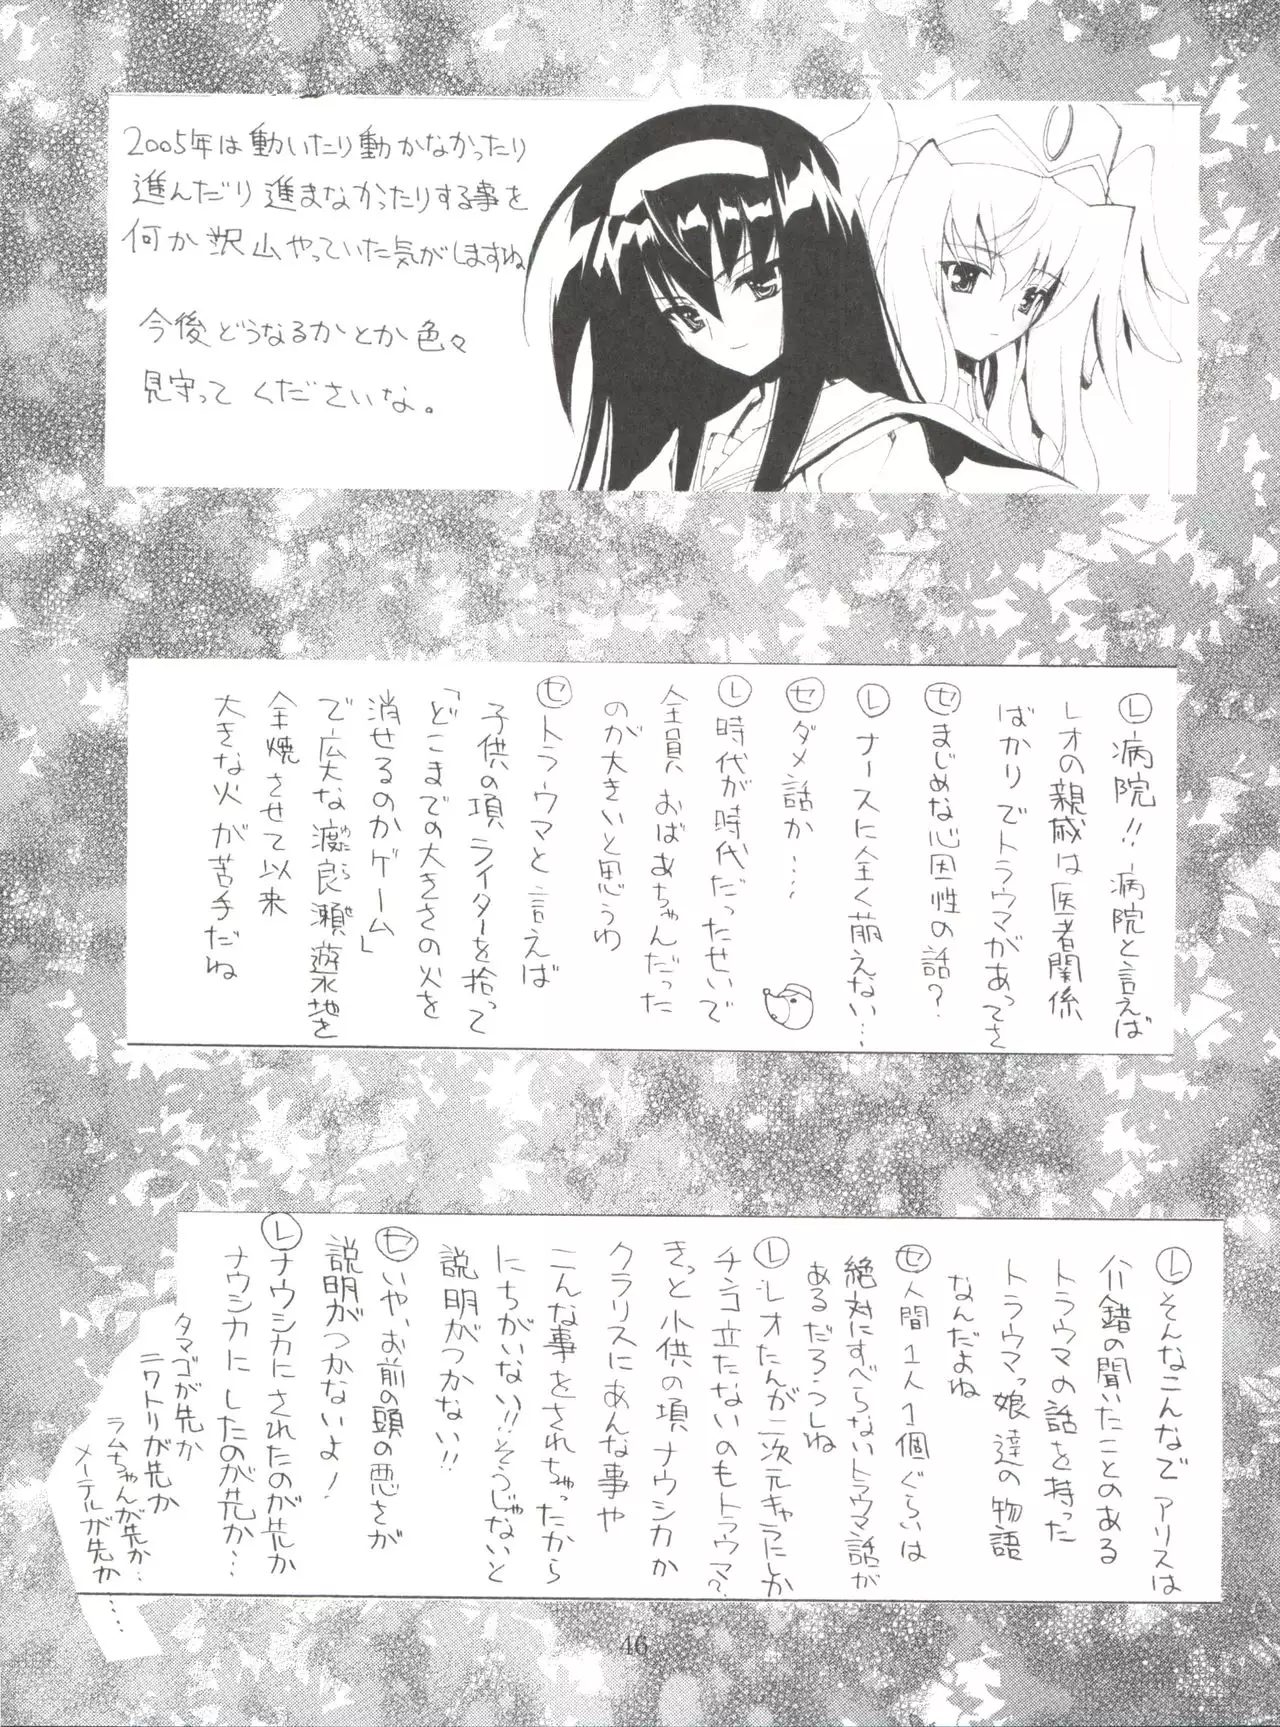 2005年は動いたり動かなかったり
進んだり進まなかったりする事を
何か沢山やっていた気がしますね
今後どうなるかとか色々
見守ってくださいな。
レ病院!!病院と言えば
レオの親戚は医者関係
ばかりでトラウマがあってさ
セまじめな心因性の話?
レナースに全く萌えない…
セダメ話か……
レ時代が時代だったせいで
全員おばあちゃんだった
のが大きいと思うわ
セトラウマと言えば
子供の項ライターを拾って
「どこまでの大きさの火を
消せるのかゲーム」
で広大な渡良瀬遊水地を
全焼させて以来
大きな火が苦手だね
レそんなこんなでアリスは
介錯の聞いたことのある
トラウマの話を持った
トラウマっ娘達の物語
なんだよね
セ人間1人1個ぐらいは
絶対にすべらないトラウマ話が
あるだろうしね
レレオたんが二次元キャラにしか
チンコ立たないのもトラウマ?
きっと小供の項ナウシカか
クラリスにあんな事や
こんな事をされちゃったから
にちがいない!!そうじゃないと
説明がつかない!!
セいや、お前の頭の悪さが
説明がつかないよ!
レナウシカにされたのが先か
ナウシカにしたのが先か…
タマゴが先か
ニワトリが先か
ラムちゃんが先か…
メーテルが先か……
46